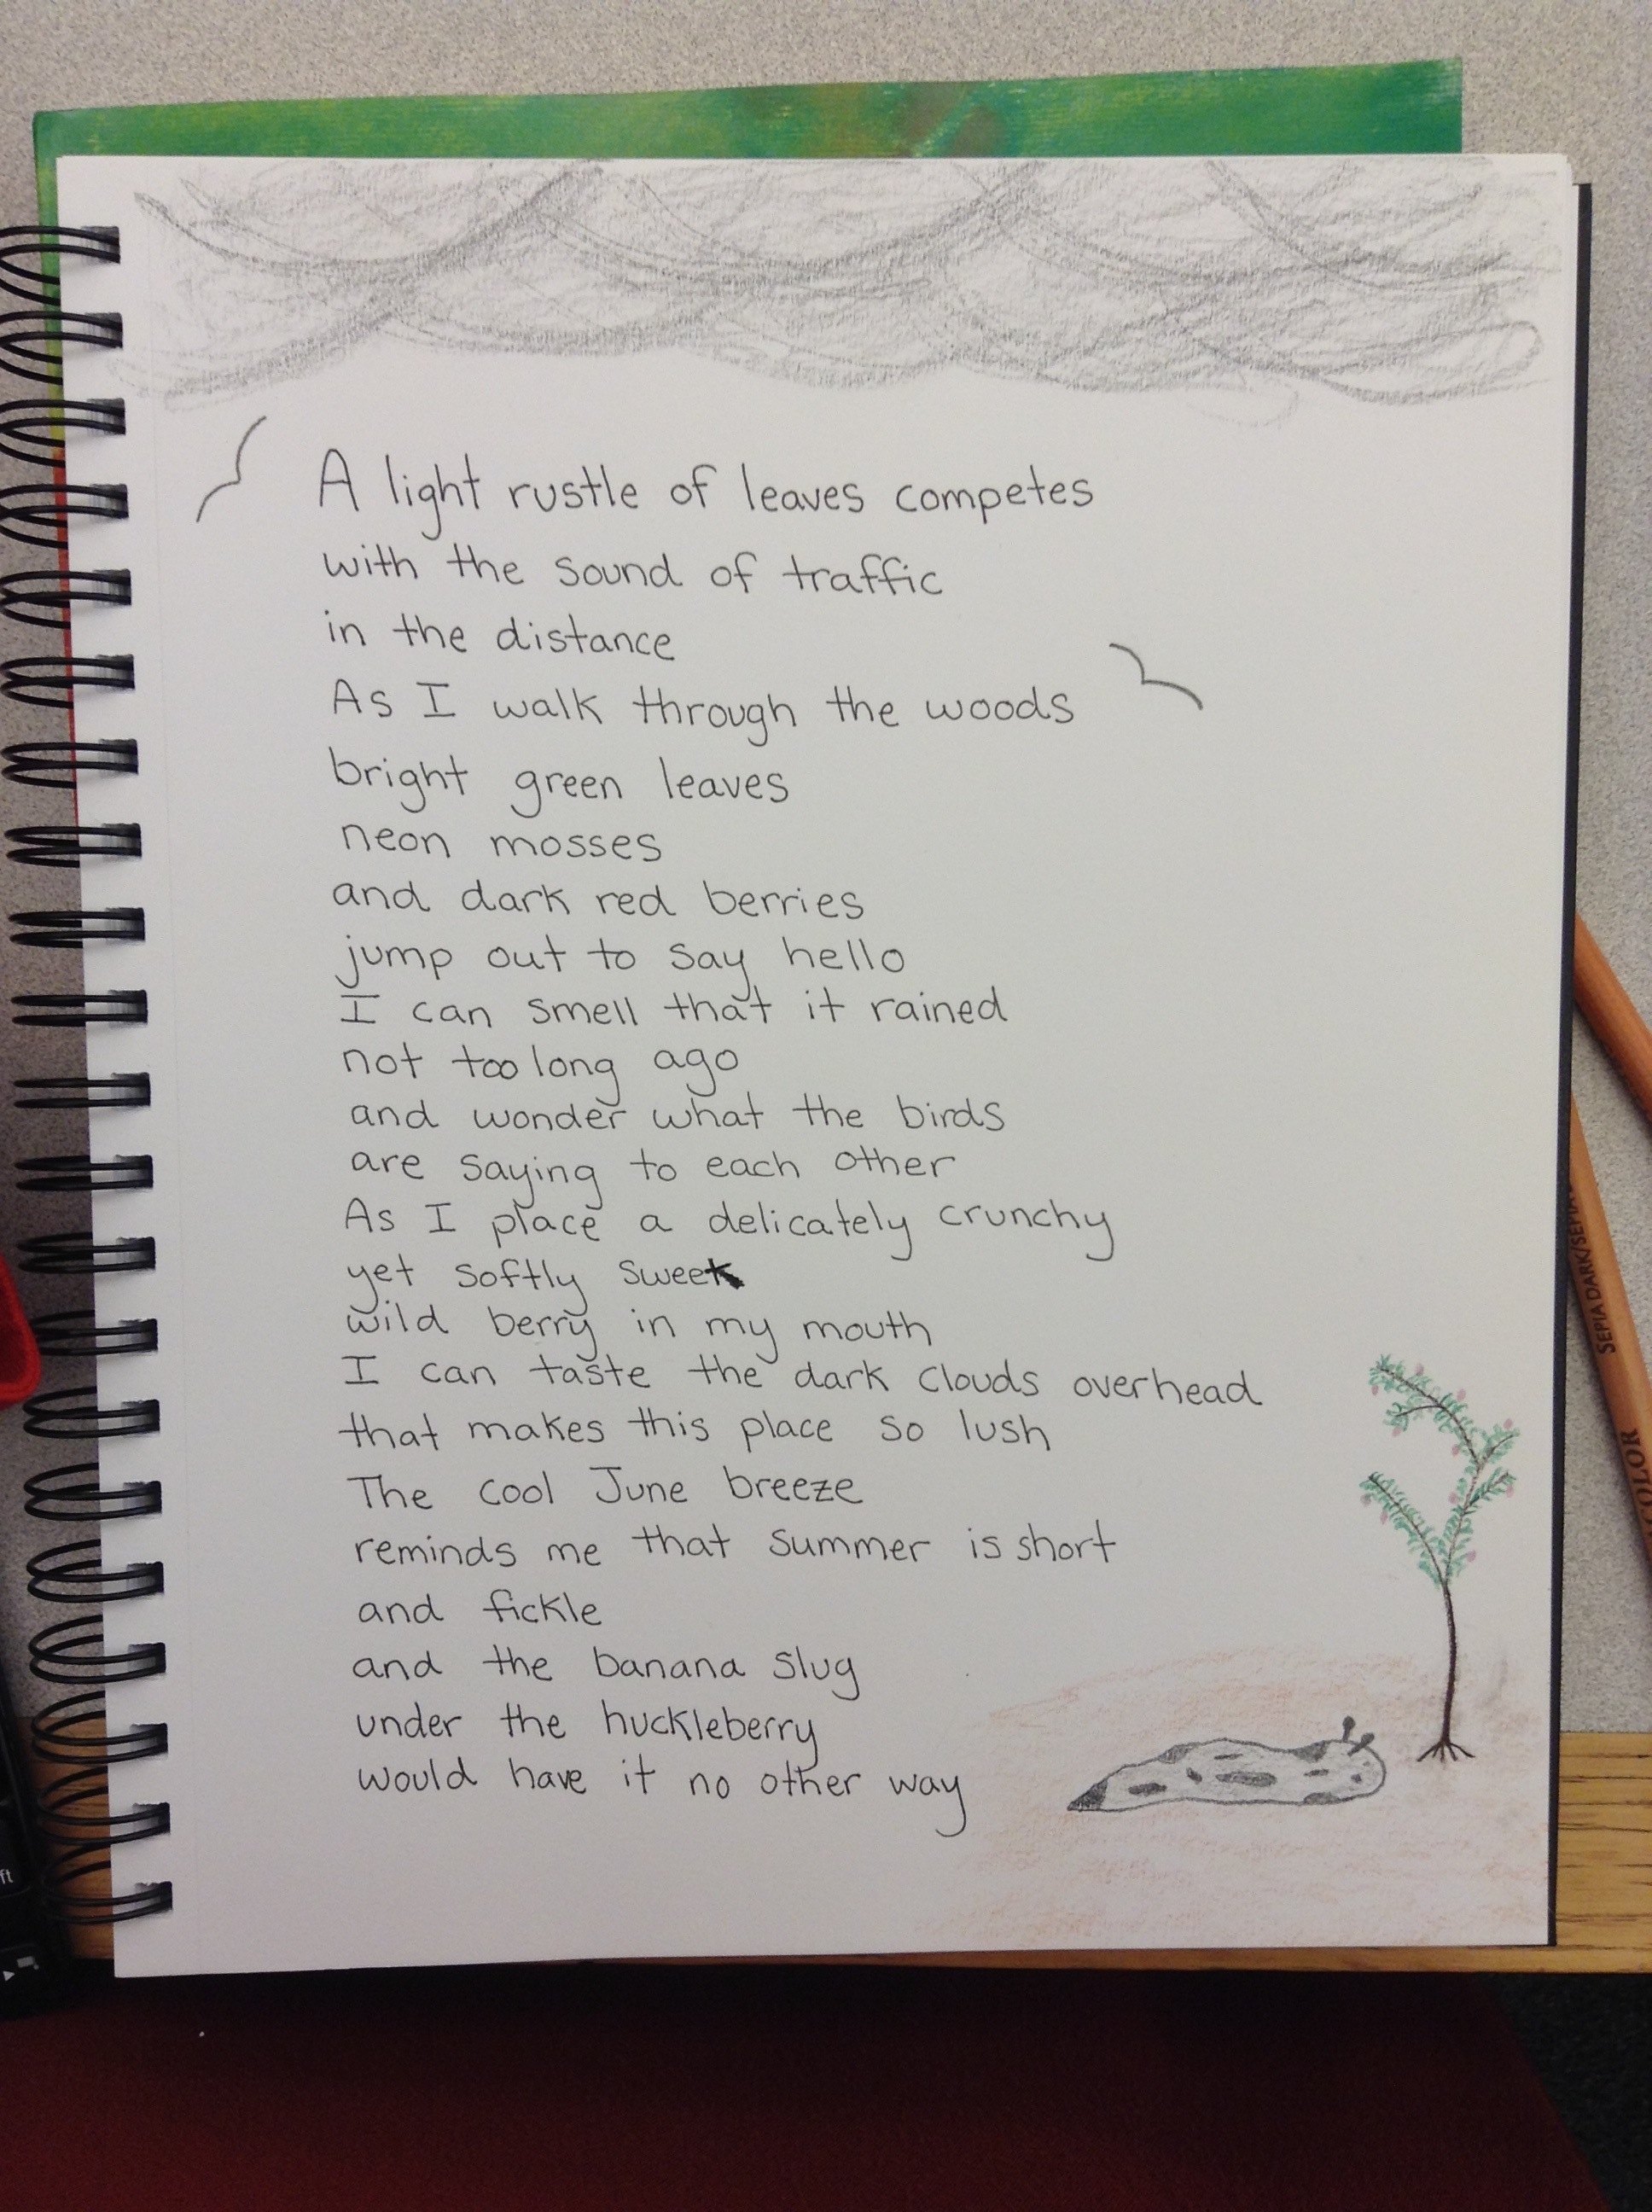 A light rustle of leaves competes
with the sound of traffic
in the distance
As I walk through the woods
bright green leaves
neon mosses
and dark red berries
jump out to say hello
I can smell that it rained
not too long ago
and wonder what the birds
are saying to each other
As I place a delicately crunchy
yet softly sweet
wild berry in my mouth
I can taste the dark clouds overhead
that makes this place so lush
The cool June breeze
reminds me that summer is short
and fickle
and the banana slug
under the huckleberry
would have it no other way
SEPIA DARK/SEPIA
COLOR
ft